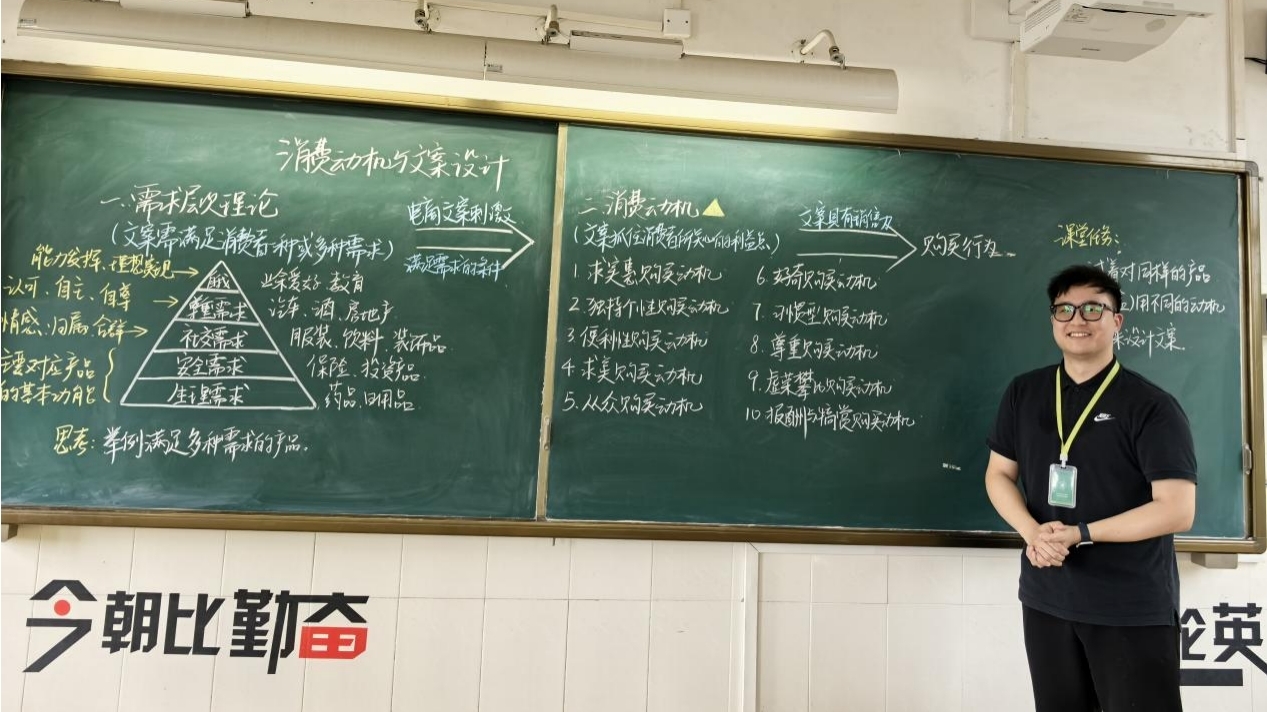 消费动机与文案设计
一.需求层次理论
(文案需满足消费者一种或多种需求)
能力发挥、理想实现
认可、自主、自尊
情感、归属、合群
主要对应产品
的基本功能
自我
尊重需求
社交需求
安全需求
生理需求
业余爱好 教育
汽车、酒、房地产
服装、饮料、装饰品
保险、投资产品
药品、日用品
思考：举例满足多种需求的产品。
电商文案刺激
满足需求的条件
二.消费动机
(文案抓住消费者所关心的利益点)
1. 求实惠购买动机
2. 独特个性购买动机
3. 便利性购买动机
4. 求美购买动机
5. 从众购买动机
6. 好奇购买动机
7. 习惯型购买动机
8. 尊重购买动机
9. 虚荣攀比购买动机
10. 报酬与犒赏购买动机
文案具有销售力
购买行为
课堂任务：
试着对同样的产品
用不同的动机
来设计文案。
今朝比勤奋
英